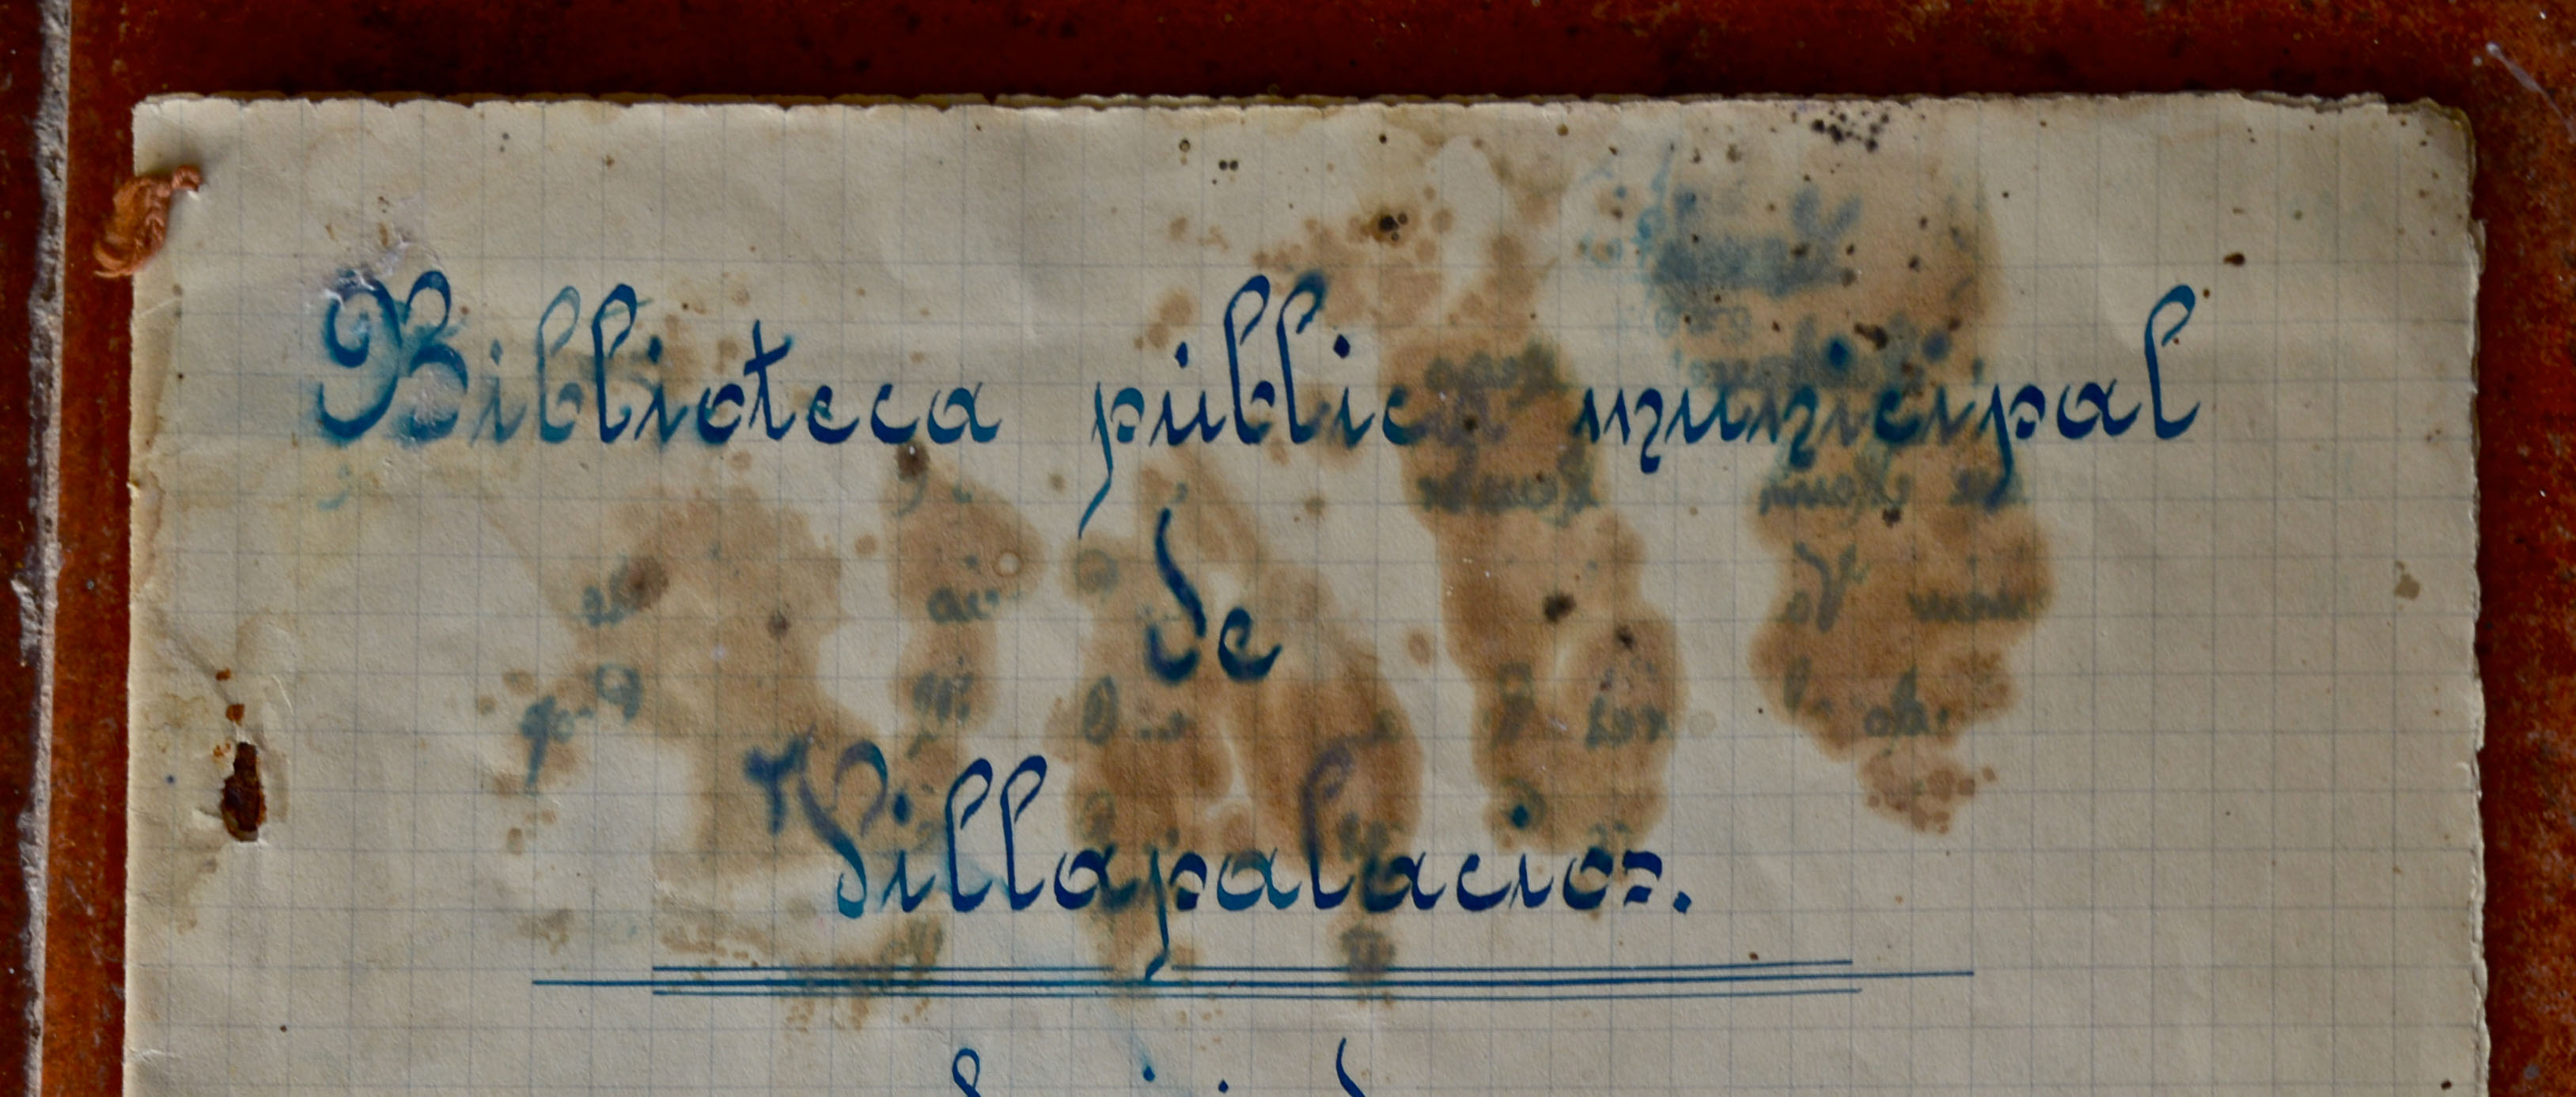 Biblioteca pública municipal
de
Villapalacios.